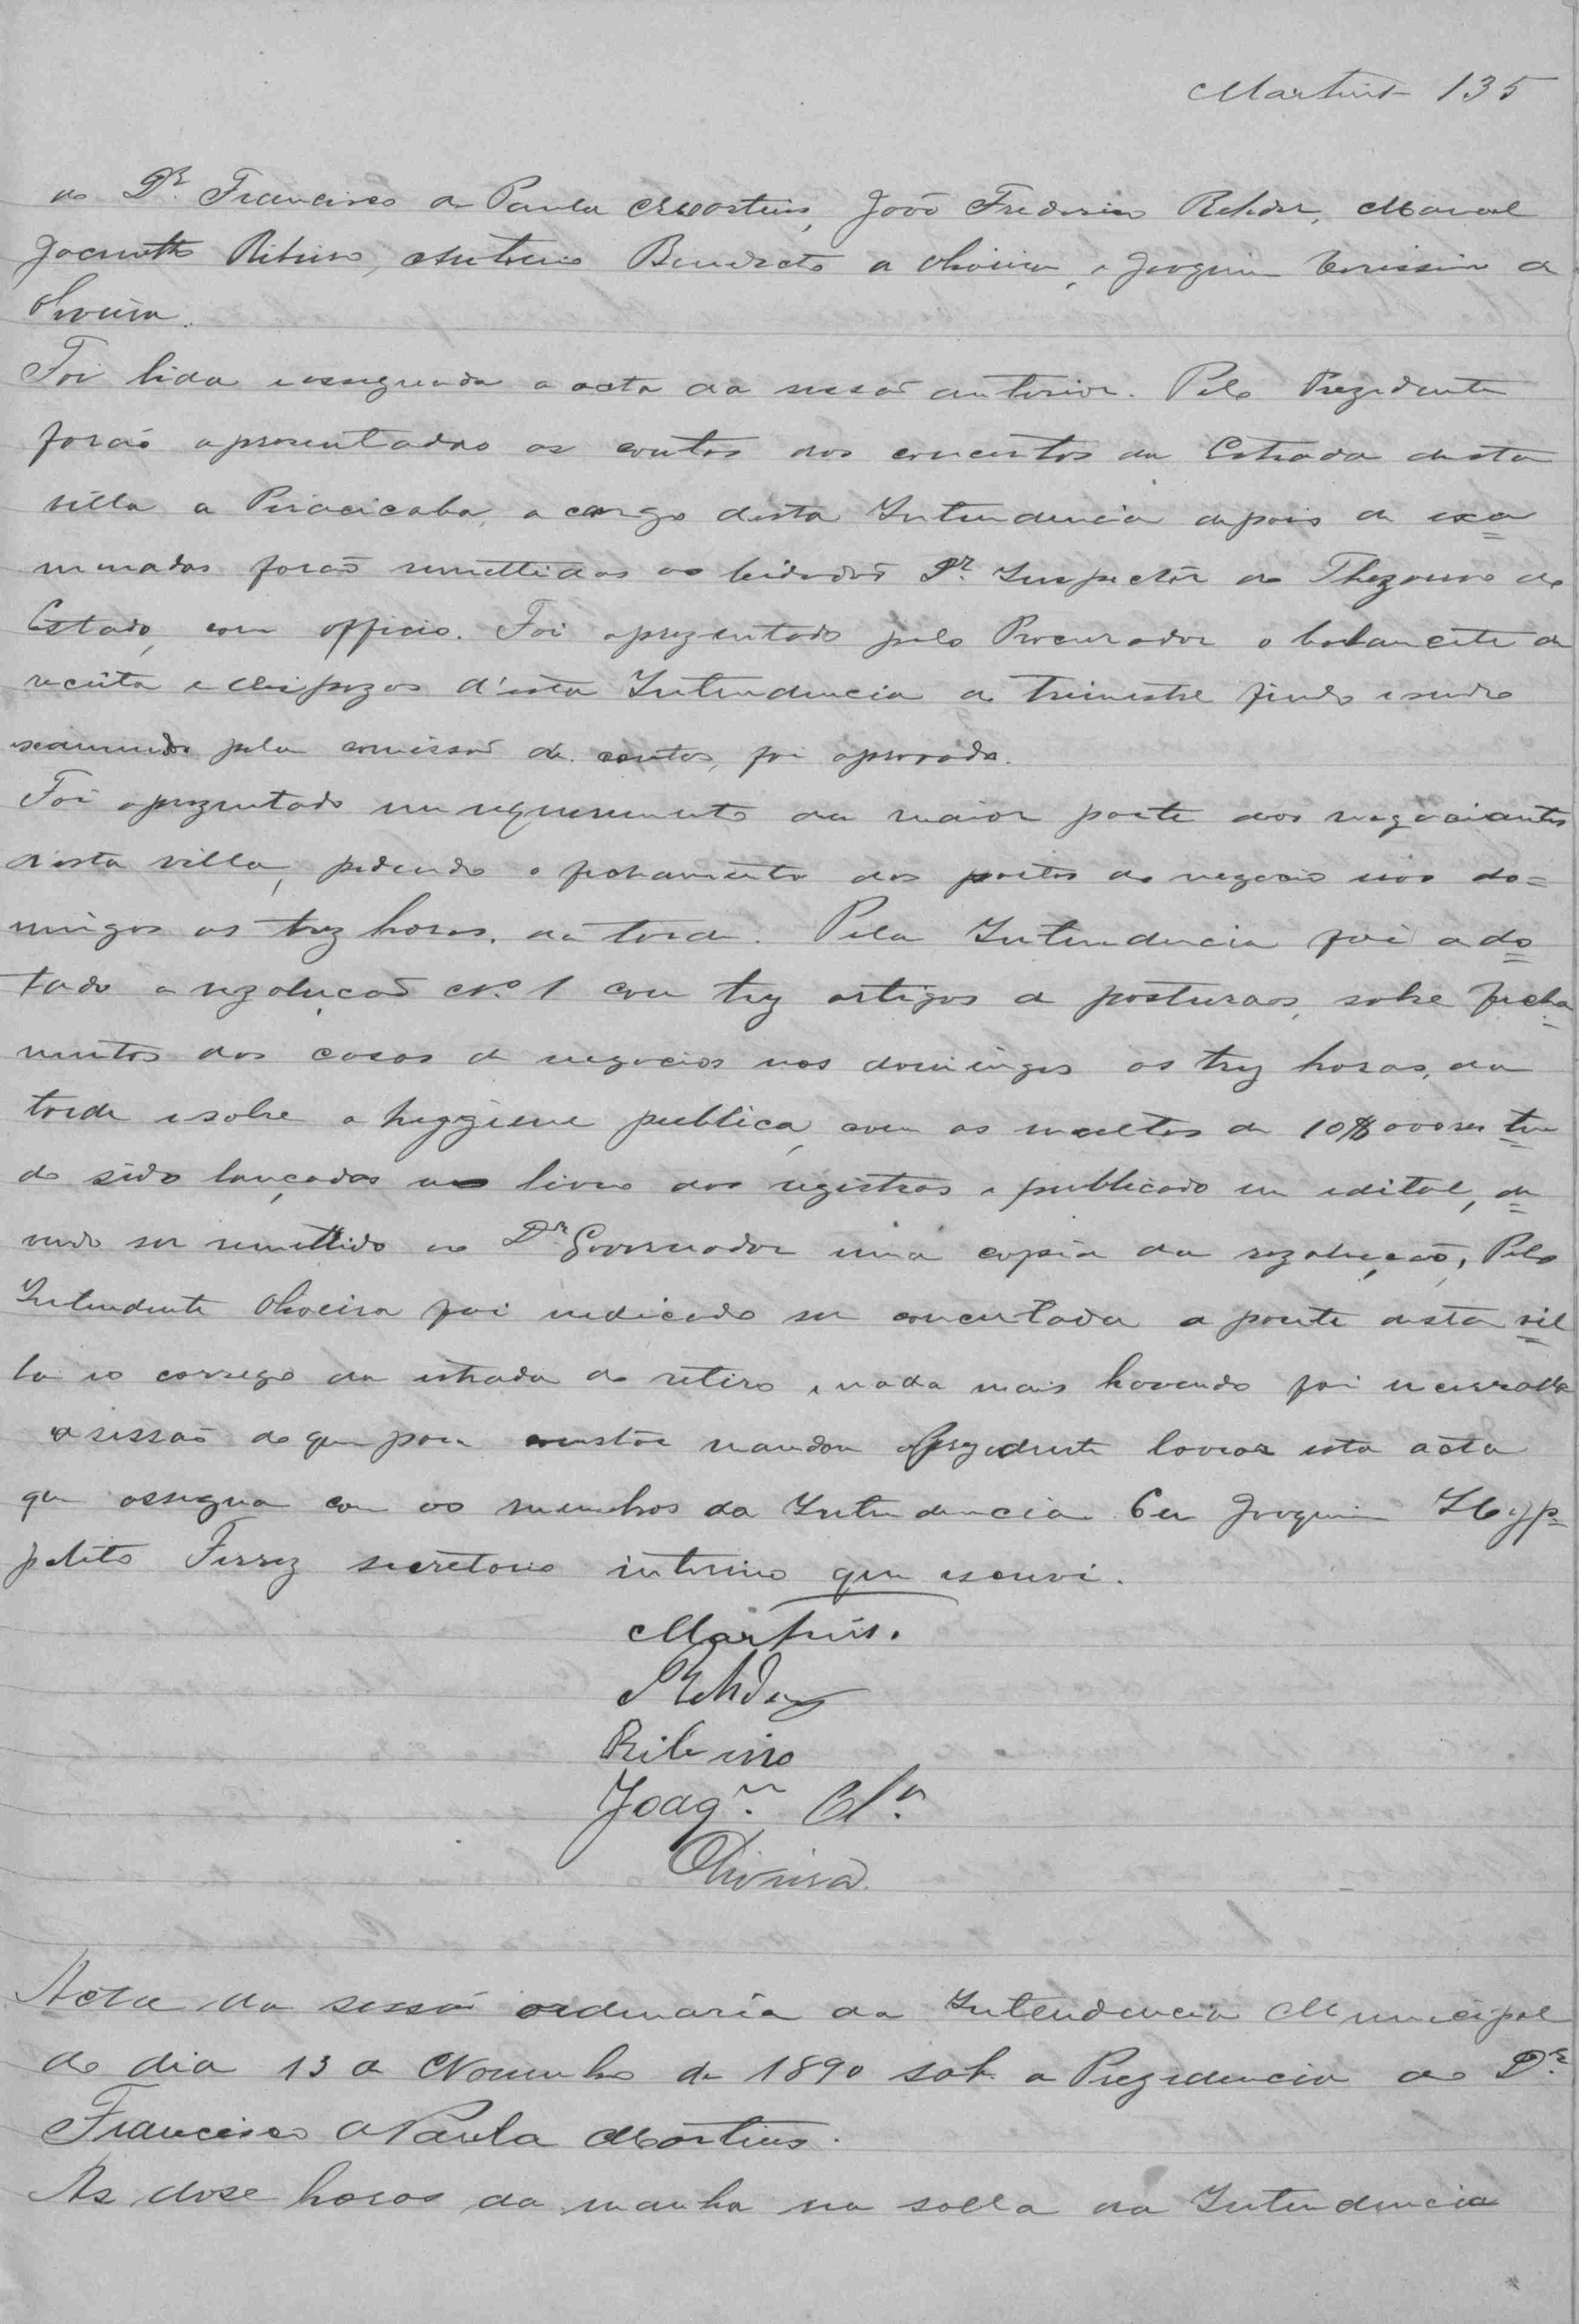 Martins 135
do Dr. Francisco de Paula Martins, João Frederico Rehder, Manoel
Jacintho Ribeiro, Antonio Benedicto de Oliveira, e Joaquim Verissimo de
Oliveira.
Foi lida e assignada a acta da sessaõ anterior. Pelo Prezidente
foraõ apresentadas as contas dos concertos da Estrada desta
villa a Piracicaba, a cargo desta Intendencia depois de exa
minadas foraõ remettidas ao Cidadaõ Dr. Inspector do Thezouro do
Estado, com officio. Foi aprezentado pelo Procurador o balancete da
receita e despezas d'esta Intendencia do trimestre findo e sendo
examinado pela comissaõ de contas, foi aprovado.
Foi aprezentado um requerimento da maior parte dos negociantes
d'esta villa, pedindo o fechamento das portas de negocio nos do=
mingos as trez horas, da tarde. Pela Intendencia foi ado
tado a rezoluçaõ No. 1 com trez artigos de posturas, sobre fecha
mentos das casas de negocios nos domingos as trez horas, da
tarde e sobre a hygiene publica, com as multas de 10$000 rs ten
do sido lançadas no livro dos registros e publicado em edital, de
vendo ser remettido ao Dr. Governador uma copia da rezoluçaõ, Pelo
Intendente Oliveira foi indicado ser concertada a ponte desta vil
la no corrego da estrada do retiro, e nada mais havendo foi encerrada
a sessaõ do que para constar mandou o Prezidente lavrar esta acta
que assigna com os membros da Intendencia Eu Joaquim Hyp=
polito Ferraz secretario interino que escrevi.
Martins.
Rehder
Ribeiro
Joaqm. Olra.
Oliveira
Acta da sessaõ ordinaria da Intendencia Municipal
do dia 13 de Novembro de 1890 sob a Prezidencia do Dr.
Francisco de Paula Martins.
As dose horas da manha na salla da Intendencia